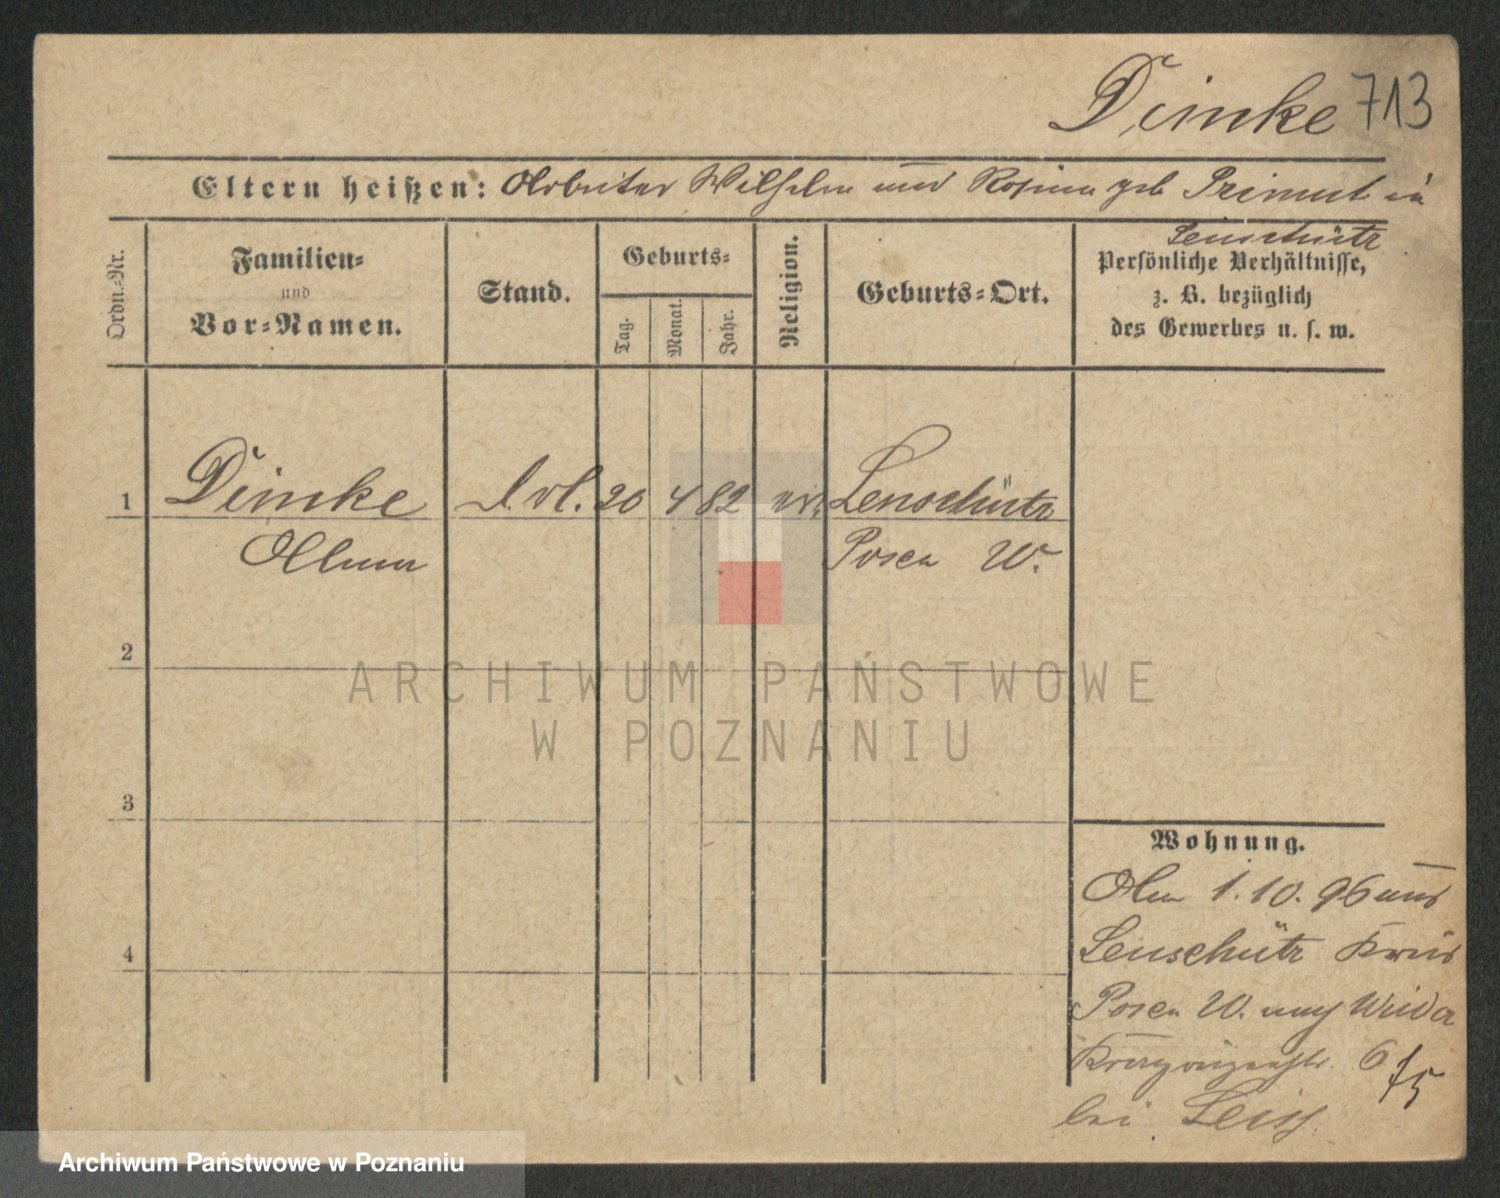 Dimke 713
Eltern heißen: Arbeiter Wilhelm und Rosina geb Primut in
Lenschütz
Ordn.-Nr.
Familien-
und
Vor-Namen.
Stand.
Geburts-
Tag.
Monat.
Jahr.
Religion.
Geburts-Ort.
Persönliche Verhältnisse,
z. B. bezüglich
des Gewerbes u. s. w.
1 Dimke 20 4 82 Lenschütz
Anna Posen W.
2
3
4
Wohnung.
Am 1.10.96 aus
Lenschütz Kreis
Posen W. nach Wilda
6
bei
ARCHIWUM PAŃSTWOWE
W POZNANIU
Archiwum Państwowe w Poznaniu